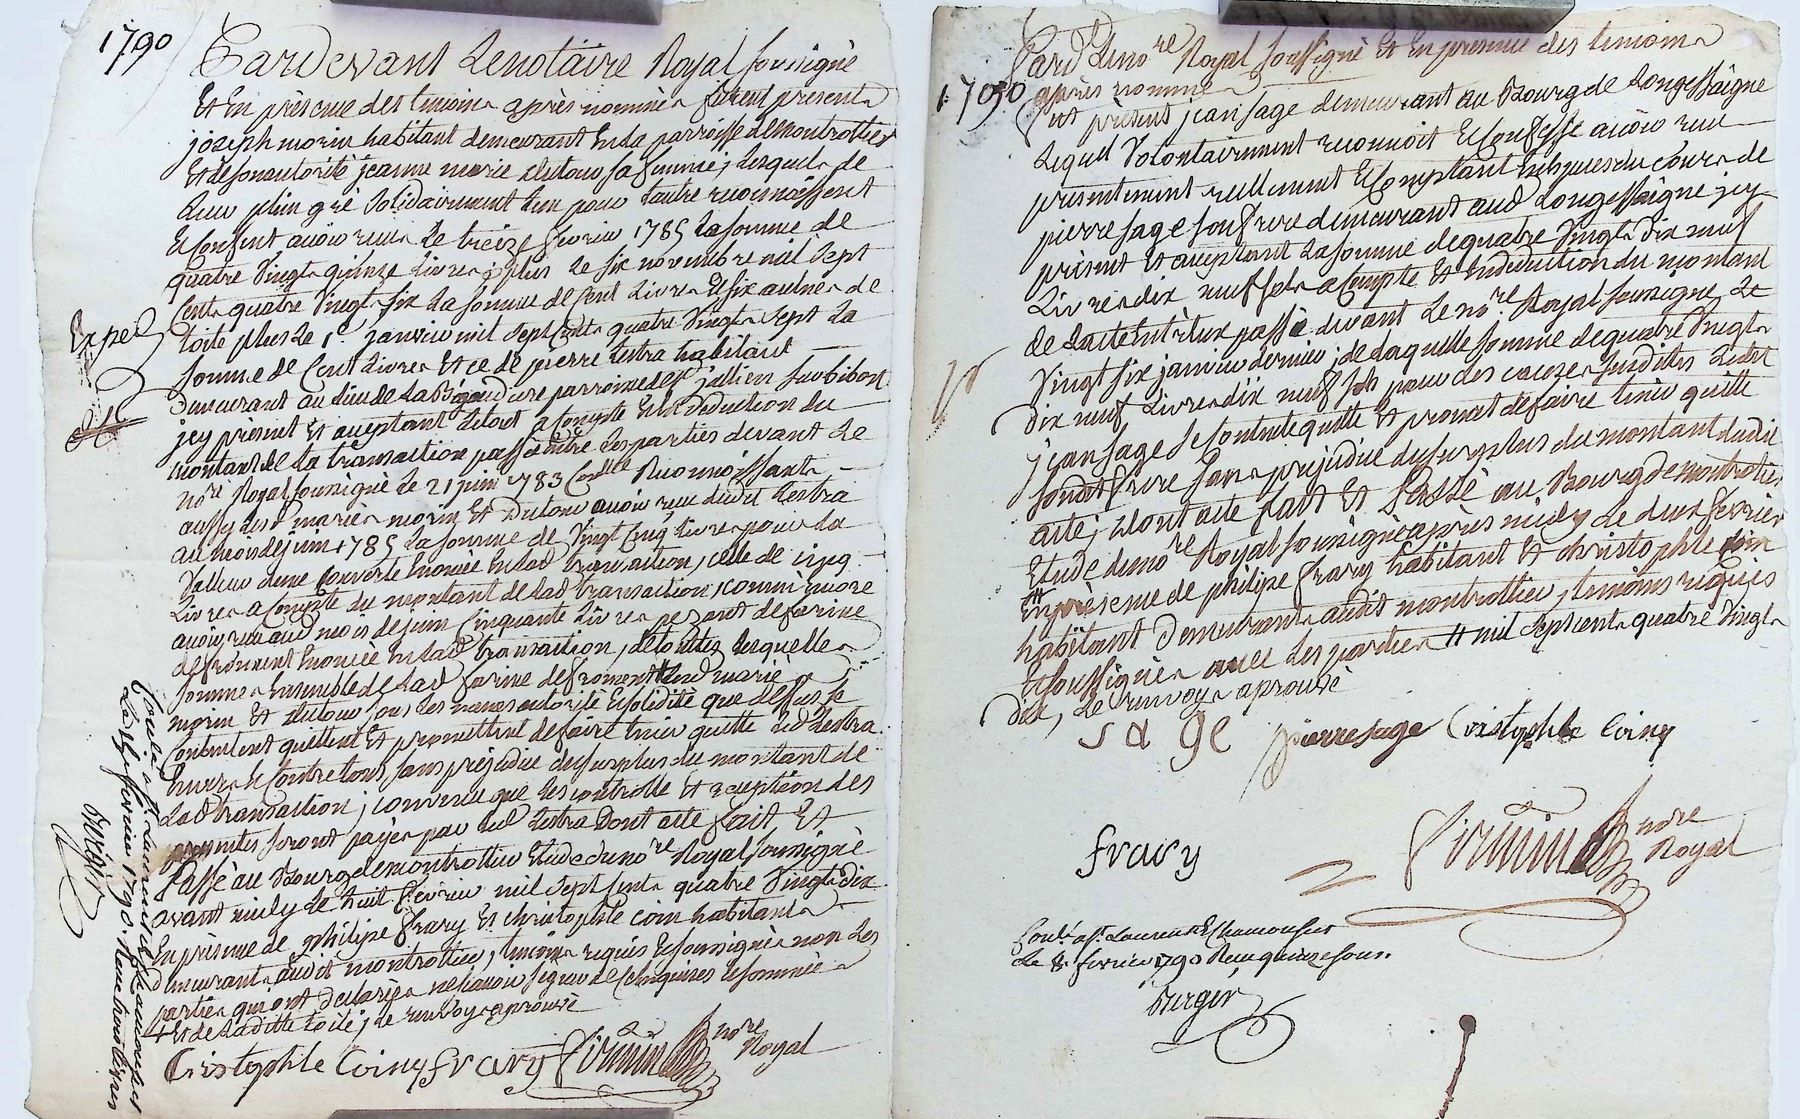 1790
Pardevant Lenotaire Royal soussignè
Et En prèsence des temoins après nommès furent presents
joseph morin habitant demeurant En la parroisse de Montrottier
Et de son autorité jeanne marie dutour sa femme; Lesquels de
Leur plein grè solidairement L'un pour L'autre reconnoissent
Et Confessent avoir reçu Le treize fevrier 1785 La somme de
quatre Vingts quinze Livres; plus Le six novembre mil Sept
Cents quatre Vingts six La somme de Cent Livres Et six aulnes de
toile plus Le 1er janvier mil Sept Cents quatre Vingts Sept La
somme de Cent Livres Et ce de pierre Lestra habitant
Demeurant au Lieu de La parroisse de st jullien sur bibost
jcy present Et aceptant Letout a Compte Et En Deduction du
montant de La transaction passèe Entre Les parties devant Le
nore Royal soussignè Le 21 juin 1783 Reconnoissants
aussy Lesd mariès morin Et Dutour avoir reçu dudit Lestra
au mois de juin 1785 La somme de Vingt Cinq Livres pour La
Valleur d'une Couverte Enoncèe En Lad transaction, celle de cinq
Livres a Compte du montant de Lad transaction, comm'encore
avoir reçu aud mois de juin Cinquante Livres pezant de farine
de froment Enoncèe En Lad transaction, de touttes Lesquelles
sommes Ensemble de Lad farine de froment # Lesd mariès
morin Et dutour sous Les mêmes autorité Et solidité que dessus se
Contentent quittent Et promettent de faire tenir quitte Led Lestra
Envers Et Contre tous, sans prejudice du surplus du montant de
Lad transaction; convenu que Les controlle Et Expédition des
presentes seront payès par Led Lestra Dont acte fait Et
Passè au Bourg de montrottier Etude du nore Royal soussignè
avant midy Le huit fevrier mil Sept Cents quatre Vingts Dix
En prèsence de philipe frary Et christophle coin habitants
Demeurants audit montrottier, temoins requis Et soussignès non Les
parties qui ont declarè ne sçavoir signer de Ce Enquises Et sommèes
# Et de Ladite toile; Le renvoy aprouvè
Cristophle Coing frary Firmin nore
Royal
Exped
Laurent de chamousset
Le 8 fevrier 1790. Reçu Livres
Berger
1790
Pard Leno.re Royal soussignè Et En presence des temoins
après nommès
fut prèsent jean sage demeurant au Bourg de Longessaigne
Lequel Volontairement reconnoit Et Confesse avoir reçu
presentement reellement Et Comptant En Espèces du Cours de
pierre sage son frere demeurant aud Longessaigne jcy
prèsent Et aceptant La somme de quatre Vingts dix neuf
Livres dix neuf sols a Compte Et En deduction du montant
de L'acte Entr'eux passè devant Le no.re Royal soussignè Le
Vingt six janvier dernier; de Laquelle somme de quatre Vingts
dix neuf Livres dix neuf sols pour Les causes susdites Ledit
jean sage se Contente quitte Et promet de faire tenir quitte
sondit frere sans prejudice du surplus du montant dudit
acte; Dont acte fait Et Passè au Bourg de montrottier
Etude du no.re Royal soussignè après midy Le deux fevrier
En prèsence de philipe frary habitant Et christophle coin
habitant Demeurants audit montrottier, temoins requis
Et soussignès avec Les parties # mil Sept cents quatre Vingts
dix, Le renvoy aprouvè
sage pierre sage Cristophle Coing
frary Firmin nore
Royal
Laurent de Chamousset
Le 8 fevrier 1790 Reçu quinze sous.
Berger